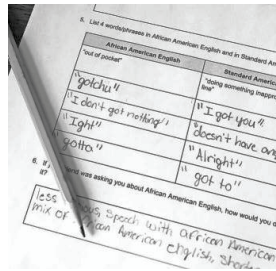 5. List 4 words/phrases in African American English and in Standard Am
African American English
Standard Americ
"out of pocket"
"doing something inappro
line"
"gotchu"
"I got you"
"I don't got nothing"
doesn't have an
"Ight"
"Alright"
"gotta"
"got to"
6. If
was asking you about African American English, how would you d
it?
less
speech with african American
mix of
can American english, short